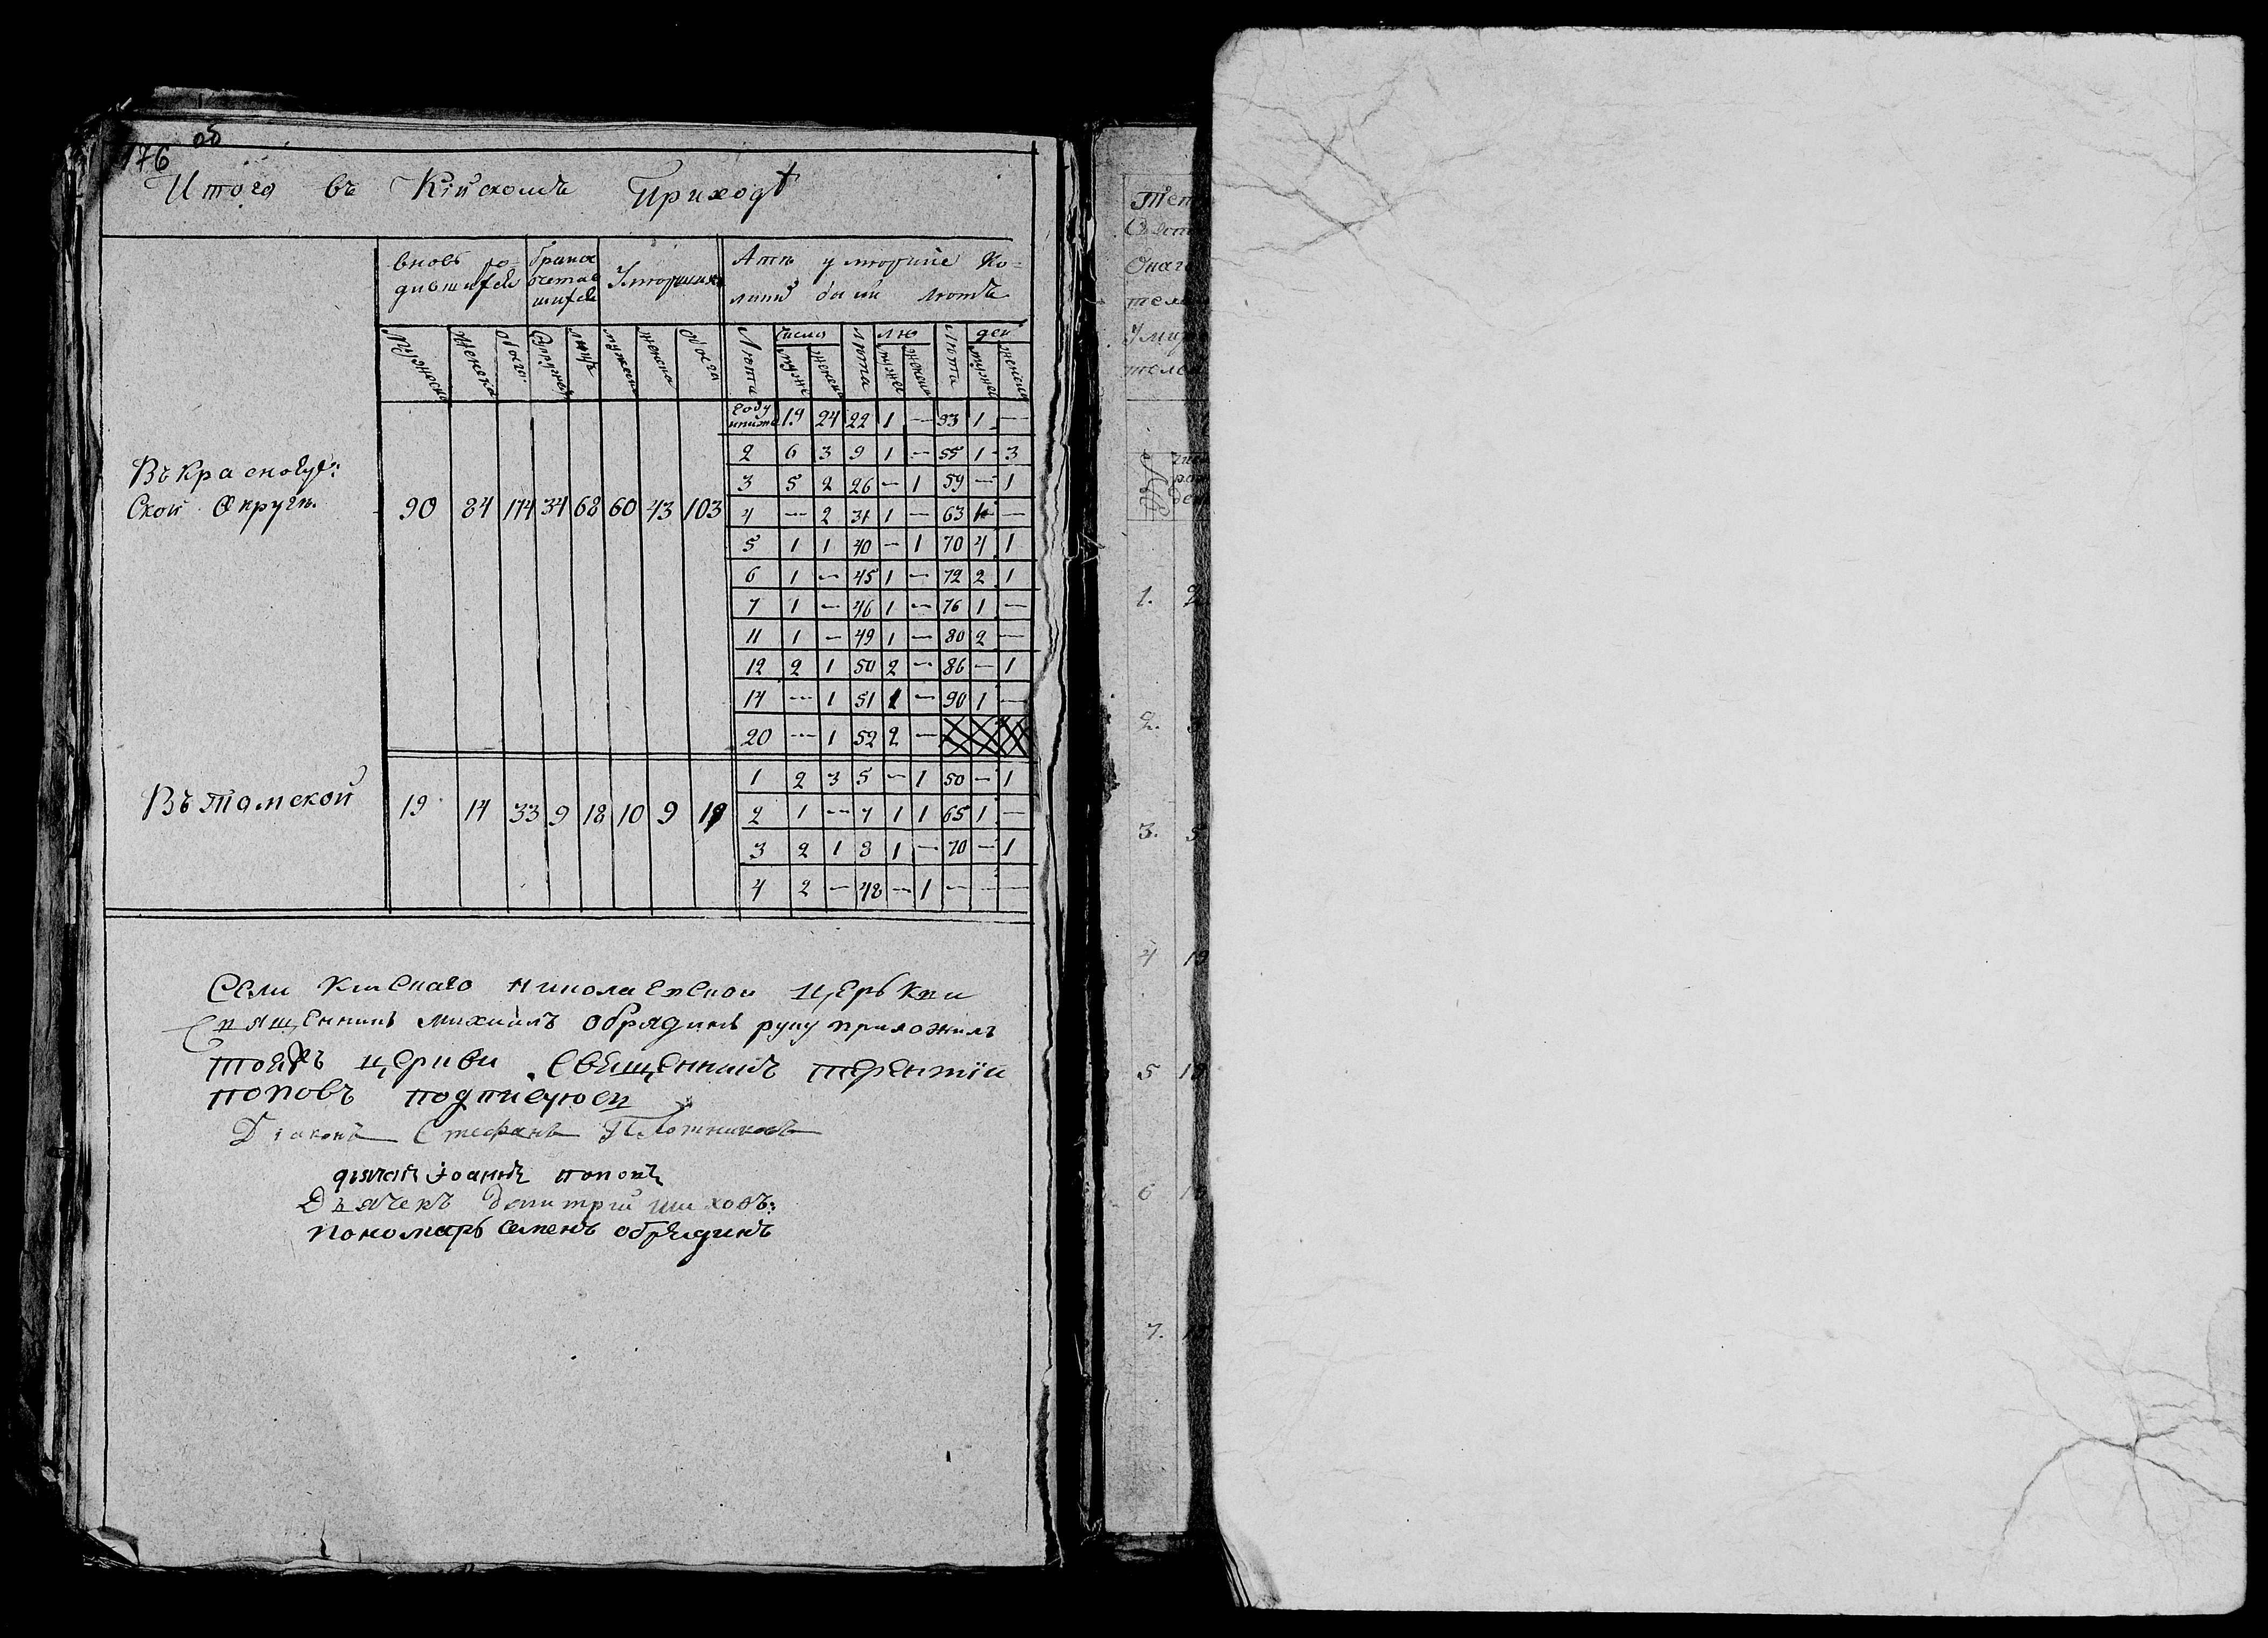 176 об
Итого въ Кійскомъ Приходѣ
вновь ро= брако умершихъ Лѣтъ умершіе Ко=
дившихся сочетав лики были лѣтъ
шихся
Мужеска женска Обоего Супружеств лицъ мужеска женска Обоега Лѣта число мужеск женска лѣта лю мужеск женска лѣта дей мужеск женска
году ниже 19 24 22 1 — 53 1 —
2 6 3 9 1 — 55 1 3
Въ Краснояр:
3 5 2 26 — 1 59 — 1
Ской Округѣ. 90 84 174 34 68 60 43 103
4 — 2 31 1 — 63 —
5 1 1 40 — 1 70 4 1
6 1 — 45 1 — 72 2 1
7 1 — 46 1 — 76 1 —
11 1 — 49 1 — 80 2 —
12 2 1 50 2 — 86 — 1
14 — 1 51 1 — 90 1 —
20 — 1 52 2 —
1 2 3 5 — 1 50 — 1
Въ Томской 19 14 33 9 18 10 9 19
2 1 — 7 1 1 65 1 —
3 2 1 8 1 — 70 — 1
4 2 — 48 — 1 — — —
Села Кийскаго николаевской церькви
Священникъ михаилъ обрядинъ руку приложилъ
тояжъ церкви священникъ терентїи
поповъ подписуюсь
Діаконъ Стефанъ Плотниковъ
дьячокъ іоаннъ поповъ
Дьячекъ Димитрій Шиховъ:
пономарь семенъ обрядинъ
1.
2.
3. 5
4 19
5
6
7.